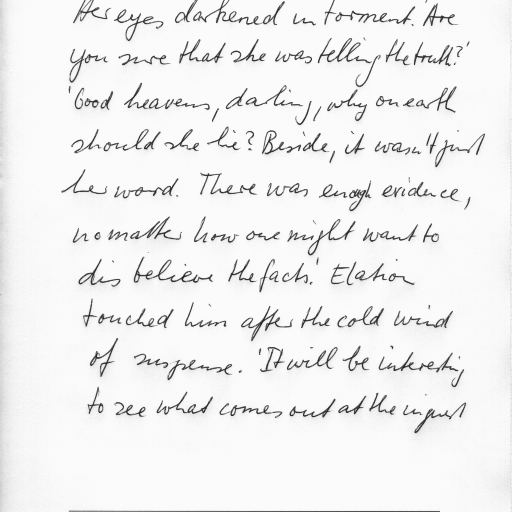 Her eyes darkened in torment. 'Are
you sure that she was telling the truth?'
'Good heavens, darling, why on earth
should she lie? Beside, it wasn't just
her word. There was enough evidence,
no matter how one might want to
dis believe the facts.' Elation
touched him after the cold wind
of suspense. 'It will be interesting
to see what comes out at the inquest